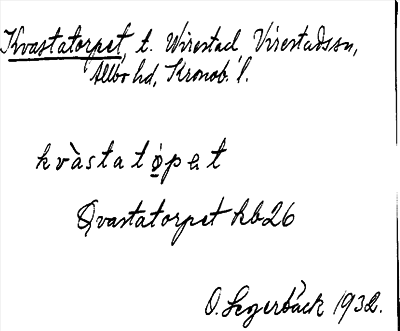 Kvastatorpet, t. Wirestad Virestads sn,
Allbo hd, Kronob. l.
kvàstatǫ́pet
Qvastatorpet hb 26
O. Segerbäck 1932.